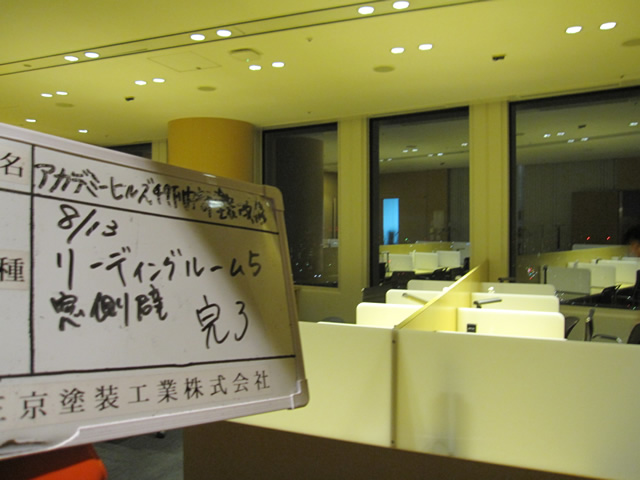 名 アカデミーヒルズ49F
8/13
種 リーディングルーム5
窓側壁
完了
京塗装工業株式会社